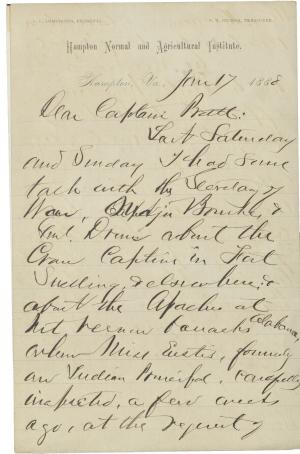 S. C. ARMSTRONG, PRINCIPAL. TREASURER.
Hampton Normal and Agricultural Institute.
Hampton, Va. Jan 17 1888
Dear Captain Pratt:
Last Saturday
and Sunday I had some
talk with the Secretary of
War, Major Bourke, &
Genl. Drum about the
Crow Captives in Fort
Snelling, & elsewhere; &
about the Apaches at
Mt Vernon barracks Alabama,
whom Miss Eustis, formerly
an Indian Principal, carefully
inspected, a few weeks
ago, at the request of